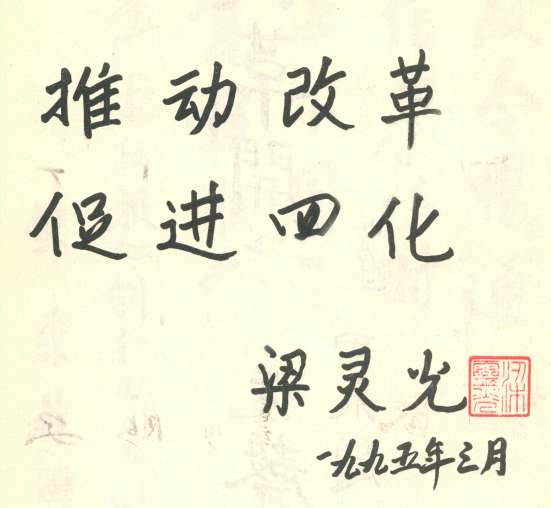 推动改革
促进四化
梁灵光
一九九五年三月